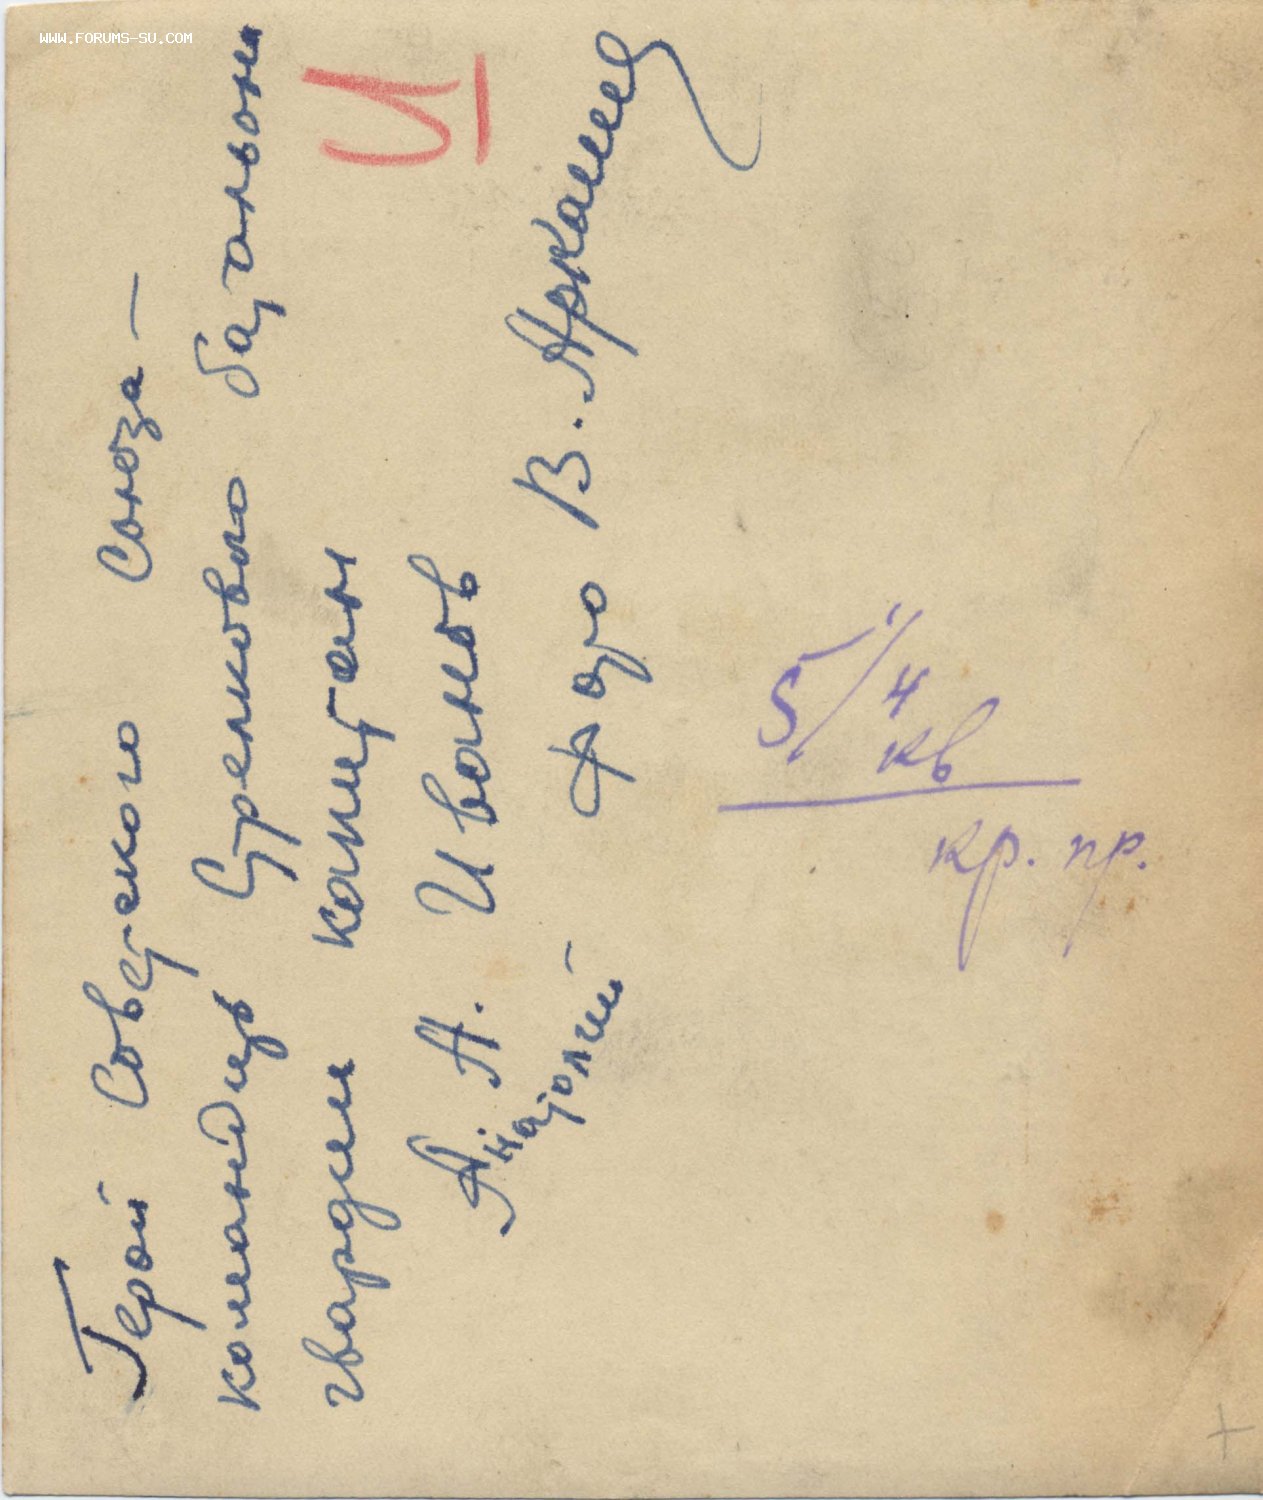 WWW.FORUMS-SU.COM
Герой Советского Союза —
командир Стрелкового батальона
гвардии капитан
А. А. Иванов
Анатолий
Фото В. Аркашев
И
5/4
кв
кр. пр.